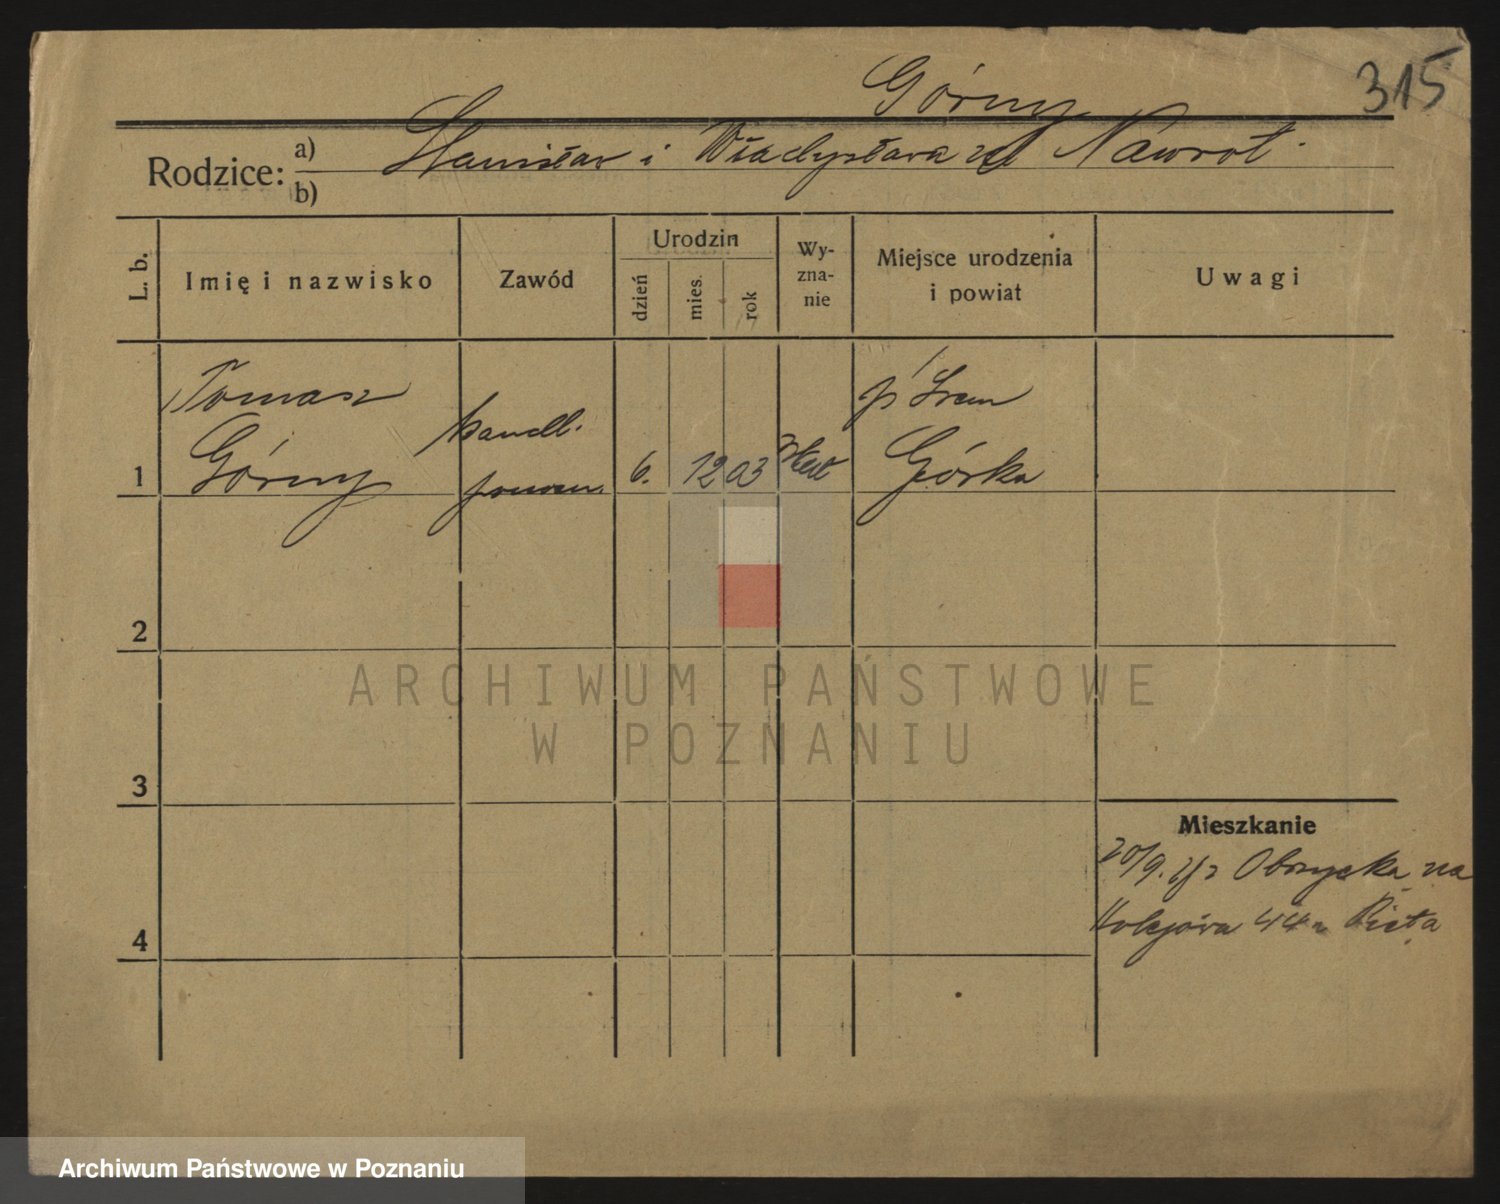 315
Górny
Rodzice: a) Stanisław i Władysława zd Nawrot.
b)
L. b.
Imię i nazwisko
Zawód
Urodzin
dzień
mies.
rok
Wy-
zna-
nie
Miejsce urodzenia
i powiat
Uwagi
Tomasz
Górny
handl.
1
6.
12
03
p/ Śrem
Górka
2
3
4
Mieszkanie
20/9. Obrzycka na
Kolejowa 44
ARCHIWUM PAŃSTWOWE
W POZNANIU
Archiwum Państwowe w Poznaniu